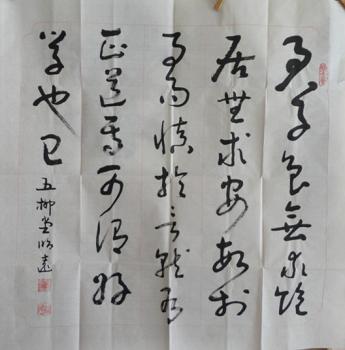 君子食無求飽
居無求安敏於
事而慎於言就有
正道焉可謂好
學也已
五柳堂